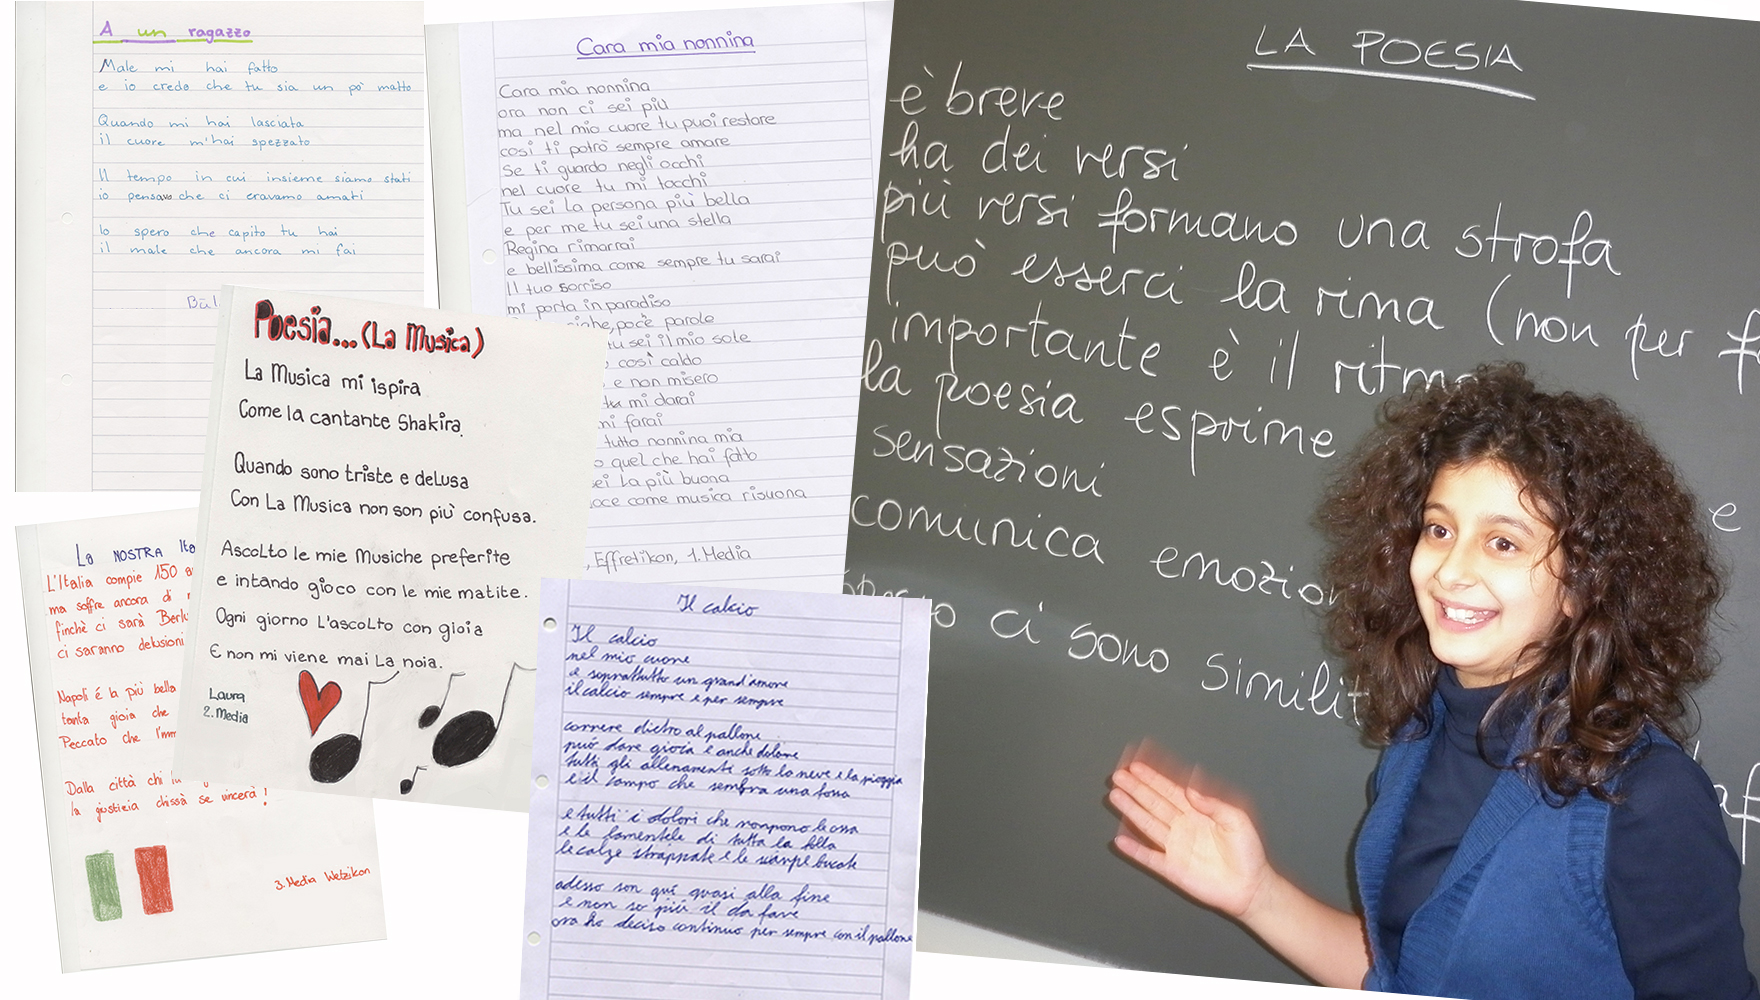 A un ragazzo
Male mi hai fatto
e io credo che tu sia un pò matto
Quando mi hai lasciata
il cuore m'hai spezzato
Il tempo in cui insieme siamo stati
io pensavo che ci eravamo amati
Io spero che capito tu hai
il male che ancora mi fai
Cara mia nonnina
Cara mia nonnina
ora non ci sei più
ma nel mio cuore tu puoi restare
così ti potrò sempre amare
Se ti guardo negli occhi
nel cuore tu mi tocchi
Tu sei la persona più bella
e per me tu sei una stella
Regina rimarrai
e bellissima come sempre tu sarai
Il tuo sorriso
mi porta in paradiso
poce parole
tu sei il mio sole
così caldo
e non misero
tu mi darai
mi farai
tutto nonnina mia
quel che hai fatto
sei la più buona
voce come musica risuona
, Effretikon, 1. Media
Poesia...(La Musica)
La Musica mi ispira
Come la cantante Shakira.
Quando sono triste e delusa
Con La Musica non son più confusa.
Ascolto le mie Musiche preferite
e intando gioco con le mie matite.
Ogni giorno L'ascolto con gioia
E non mi viene mai La noia.
Laura
2. Media
La NOSTRA
L'Italia compie 150
ma soffre ancora di
finchè ci sarà
ci saranno delusioni
Napoli é la più bella
tanta gioia che
Peccato che
Dalla città chi
la giustieia chissà se vincerà!
3. Media Wetzikon
Il calcio
Il calcio
nel mio cuore
e soprattutto un grand'amore
il calcio sempre e per sempre
correre dietro al pallone
può dare gioia e anche dolore
tutti gli allenamenti sotto la neve e la pioggia
e il campo che sembra una fossa
e tutti i dolori che rompono le ossa
e le lamentele di tutta la folla
le calze strappate e le scarpe bucate
adesso son qui quasi alla fine
e non so più il da fare
ora ho deciso continuo per sempre con il pallone
LA POESIA
è breve
ha dei versi
più versi formano una strofa
può esserci la rima (non per
importante è il
la poesia esprime
sensazioni e
comunica
ci sono